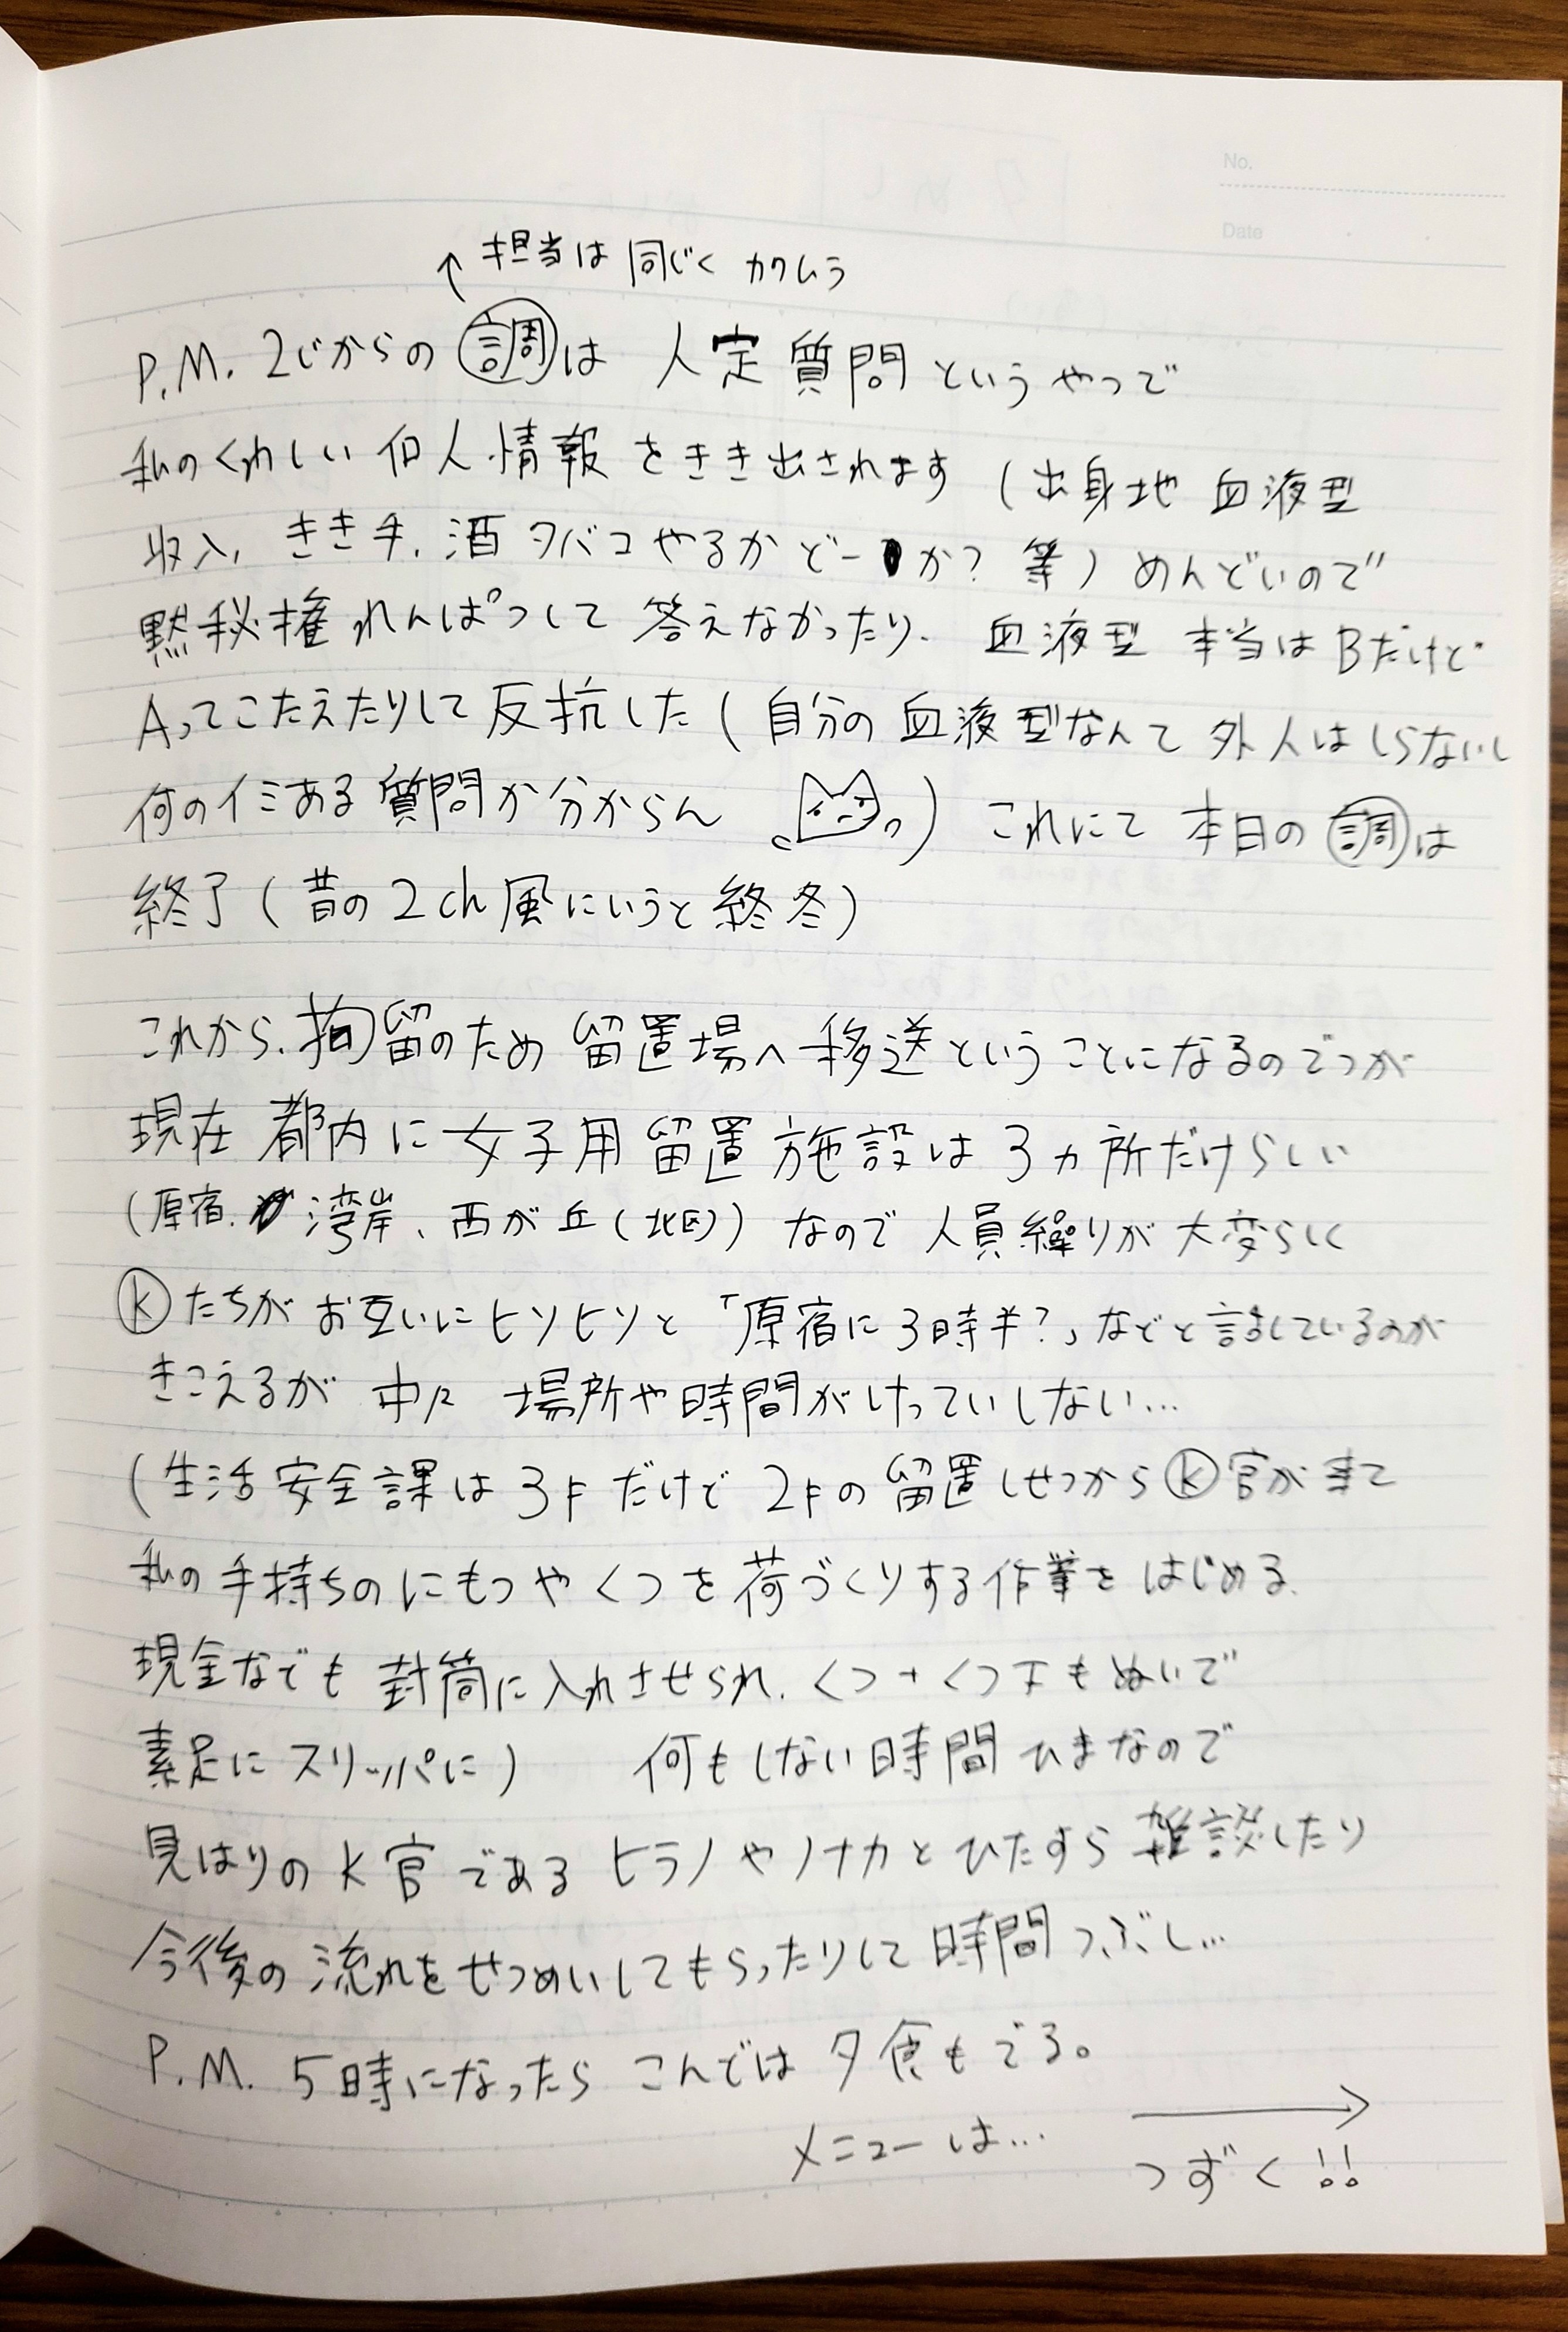 No.
Date
↑ 担当は 同じく カワムラ
P.M. 2じからの 調は 人定質問 というやつで
私のくわしい 個人情報 をきき出されます (出身地 血液型
収入、きき手、酒 タバコ やるか どーか? 等) めんどいので
黙秘権 れんぱつして 答えなかったり、 血液型 本当は Bだけど
Aってこたえたりして 反抗した (自分の 血液型なんて 外人は しらないし
何のイミある 質問か分からん ) これにて 本日の 調は
終了 (昔の 2ch 風にいうと 終冬)
これから、拘留のため 留置場へ移送ということになるのでつが
現在 都内に女子用 留置施設は 3ヵ所だけらしい
(原宿、湾岸、西が丘(北区)) なので 人員繰りが 大変らしく
Kたちが お互いに ヒソヒソと 「原宿に 3時半?」などと 話しているのが
きこえるが 中々 場所や時間が けっていしない…
(生活安全課は 3F だけど 2Fの 留置しせつから K官が 来て
私の 手持ちの にもつや くつを 荷づくりする作業を はじめる、
現金なども 封筒に入れさせられ、くつ+くつ下も ぬいで
素足に スリッパに) 何もしない時間 ひまなので
見はりの K官である ヒラノや ノナカと ひたすら 雑談したり
今後の 流れを せつめいしてもらったりして 時間つぶし…
P.M. 5時になったら こんでは 夕食も でる。
メニューは… →
つずく!!